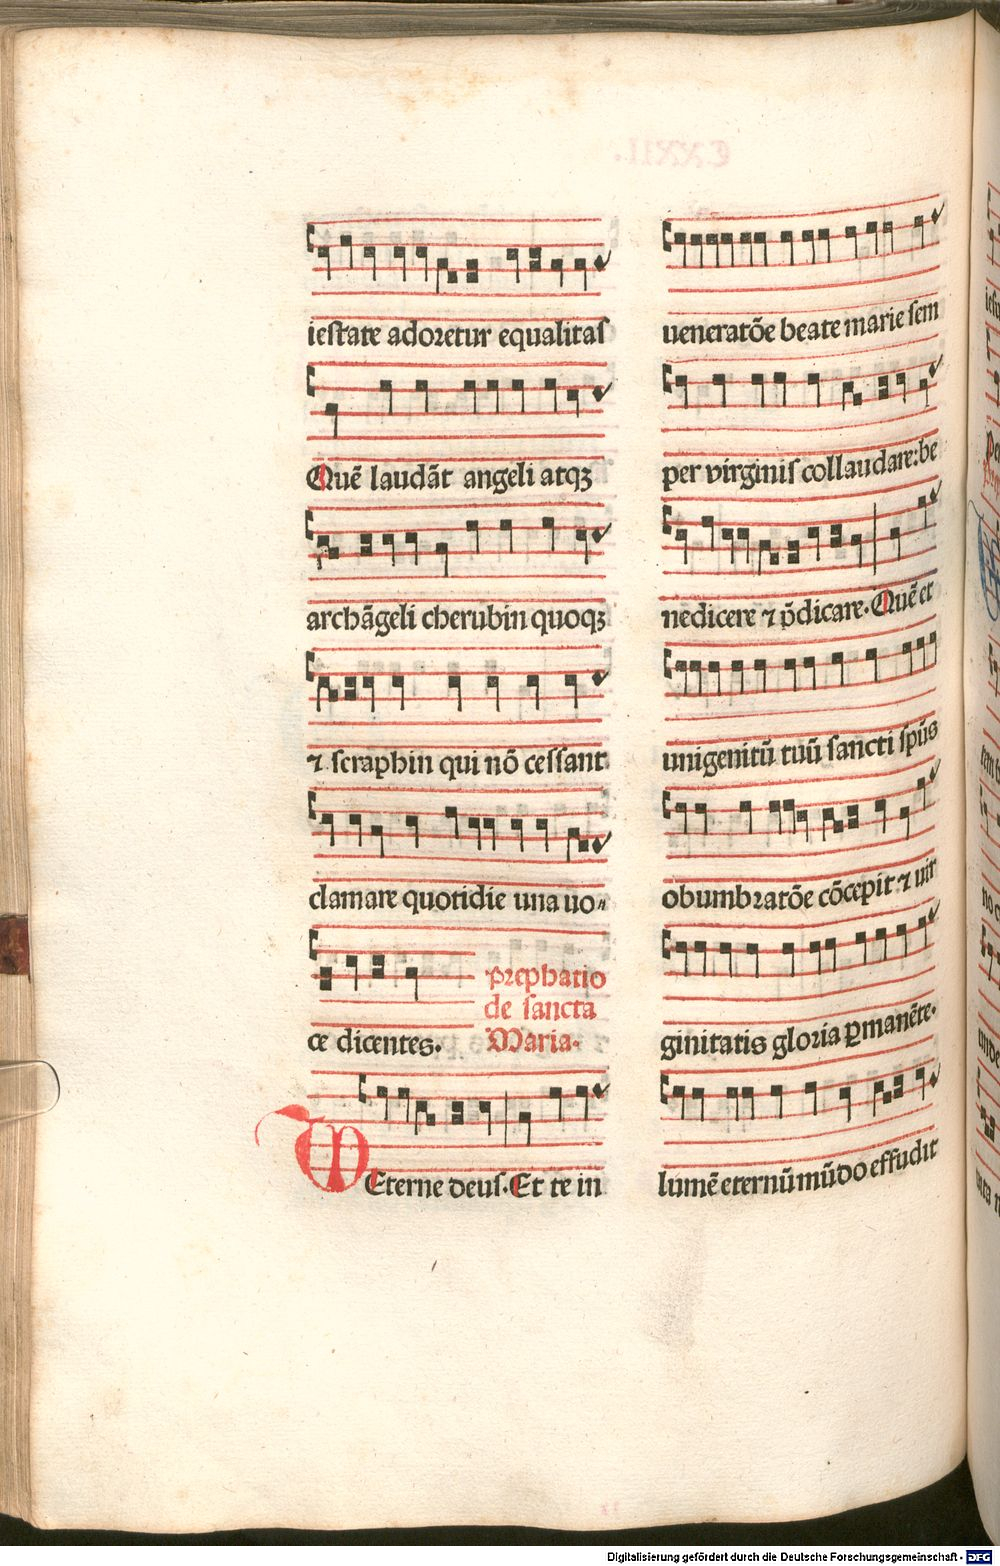 iestate adoretur equalitas
Quē laudāt angeli atqꝫ
archāgeli cherubin quoqꝫ
⁊ seraphin qui nō cessant
clamare quotidie una uo⸗
ce dicentes.
prephatio
de sancta
Maria.
Eterne deus. Et te in
ueneratōe beate marie sem
per virginis collaudare: be
nedicere ⁊ p̄dicare. Quē et
unigenitū tuū sancti sp̄us
obumbratōe cōcepit: ⁊ uir
ginitatis gloria ꝑmanēte.
lumē eternū mūdo effudit
Digitalisierung gefördert durch die Deutsche Forschungsgemeinschaft - DFG